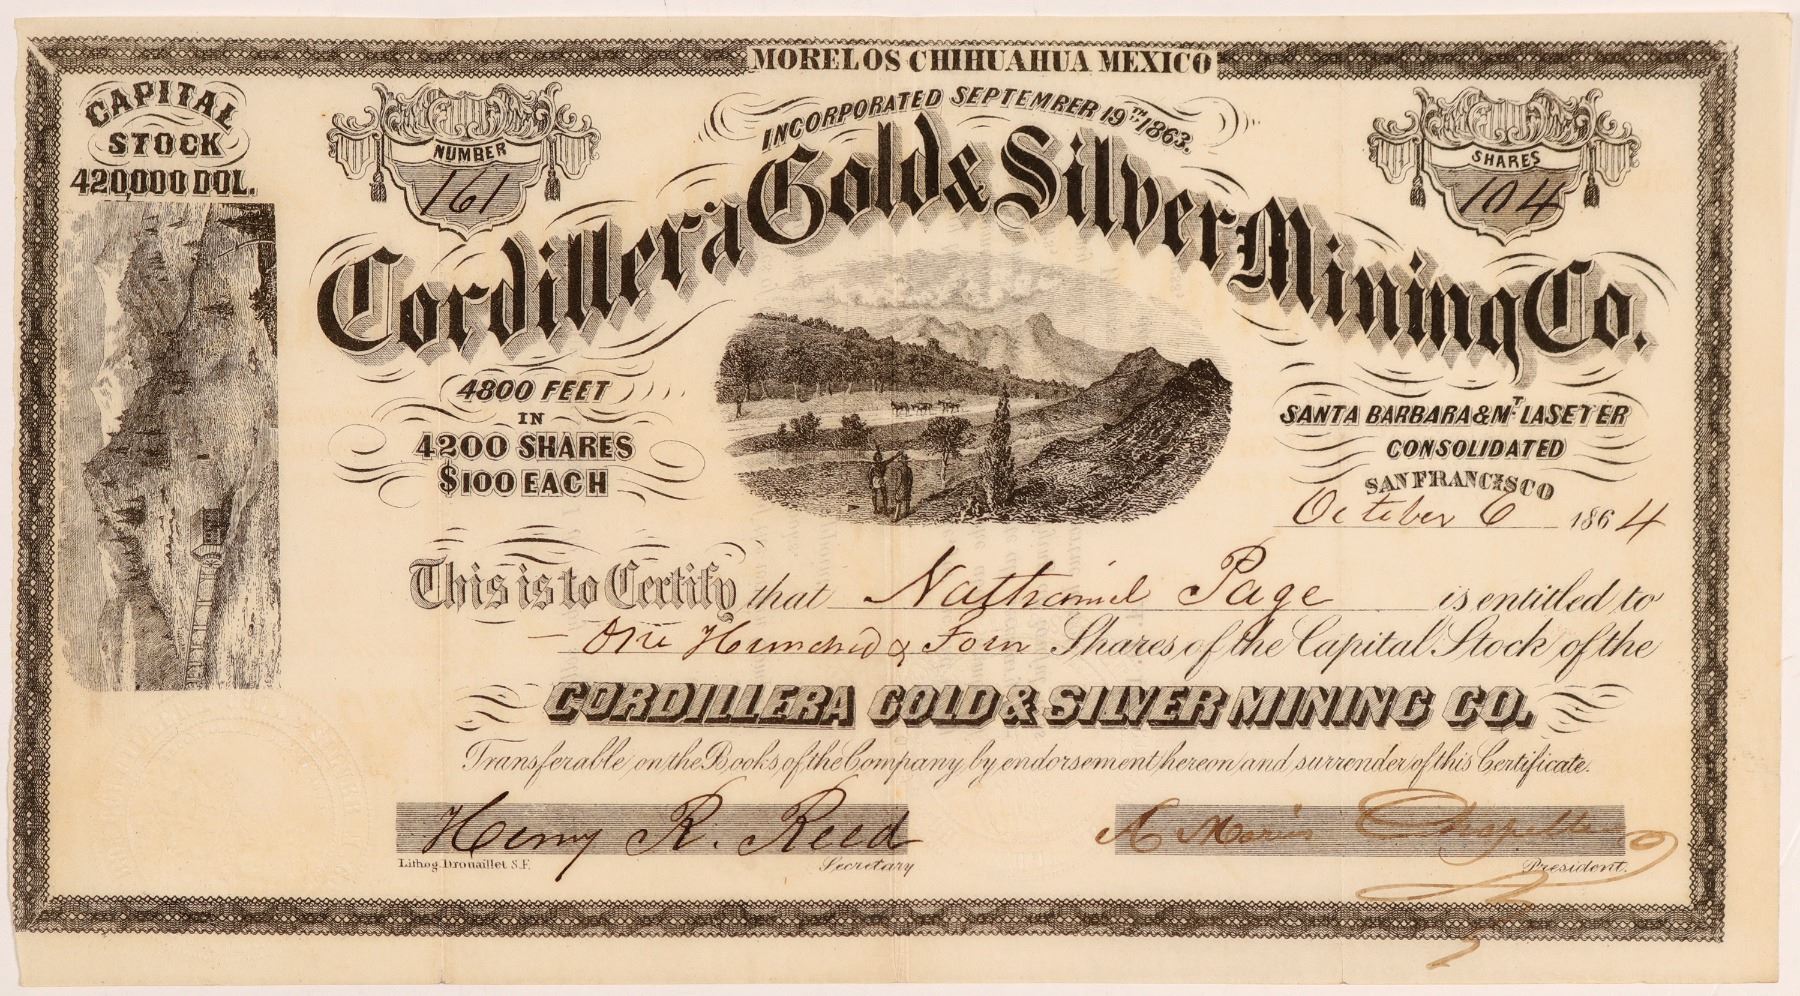 MORELOS CHIHUAHUA MEXICO
CAPITAL
STOCK
420,000 DOL.
NUMBER
161
INCORPORATED SEPTEMBER 19TH 1863.
SHARES
104
Cordillera Gold & Silver Mining Co.
4800 FEET
IN
4200 SHARES
$100 EACH
SANTA BARBARA & MT. LASETER
CONSOLIDATED
SAN FRANCISCO
October 6 1864
This is to Certify that Nathaniel Page is entitled to
One Hundred & Four Shares of the Capital Stock of the
CORDILLERA GOLD & SILVER MINING CO.
Transferable on the Books of the Company by endorsement hereon and surrender of this Certificate.
Henry R. Reed
Lithog. Drouaillet S.F.
Secretary
A Marius Chapelle
President.